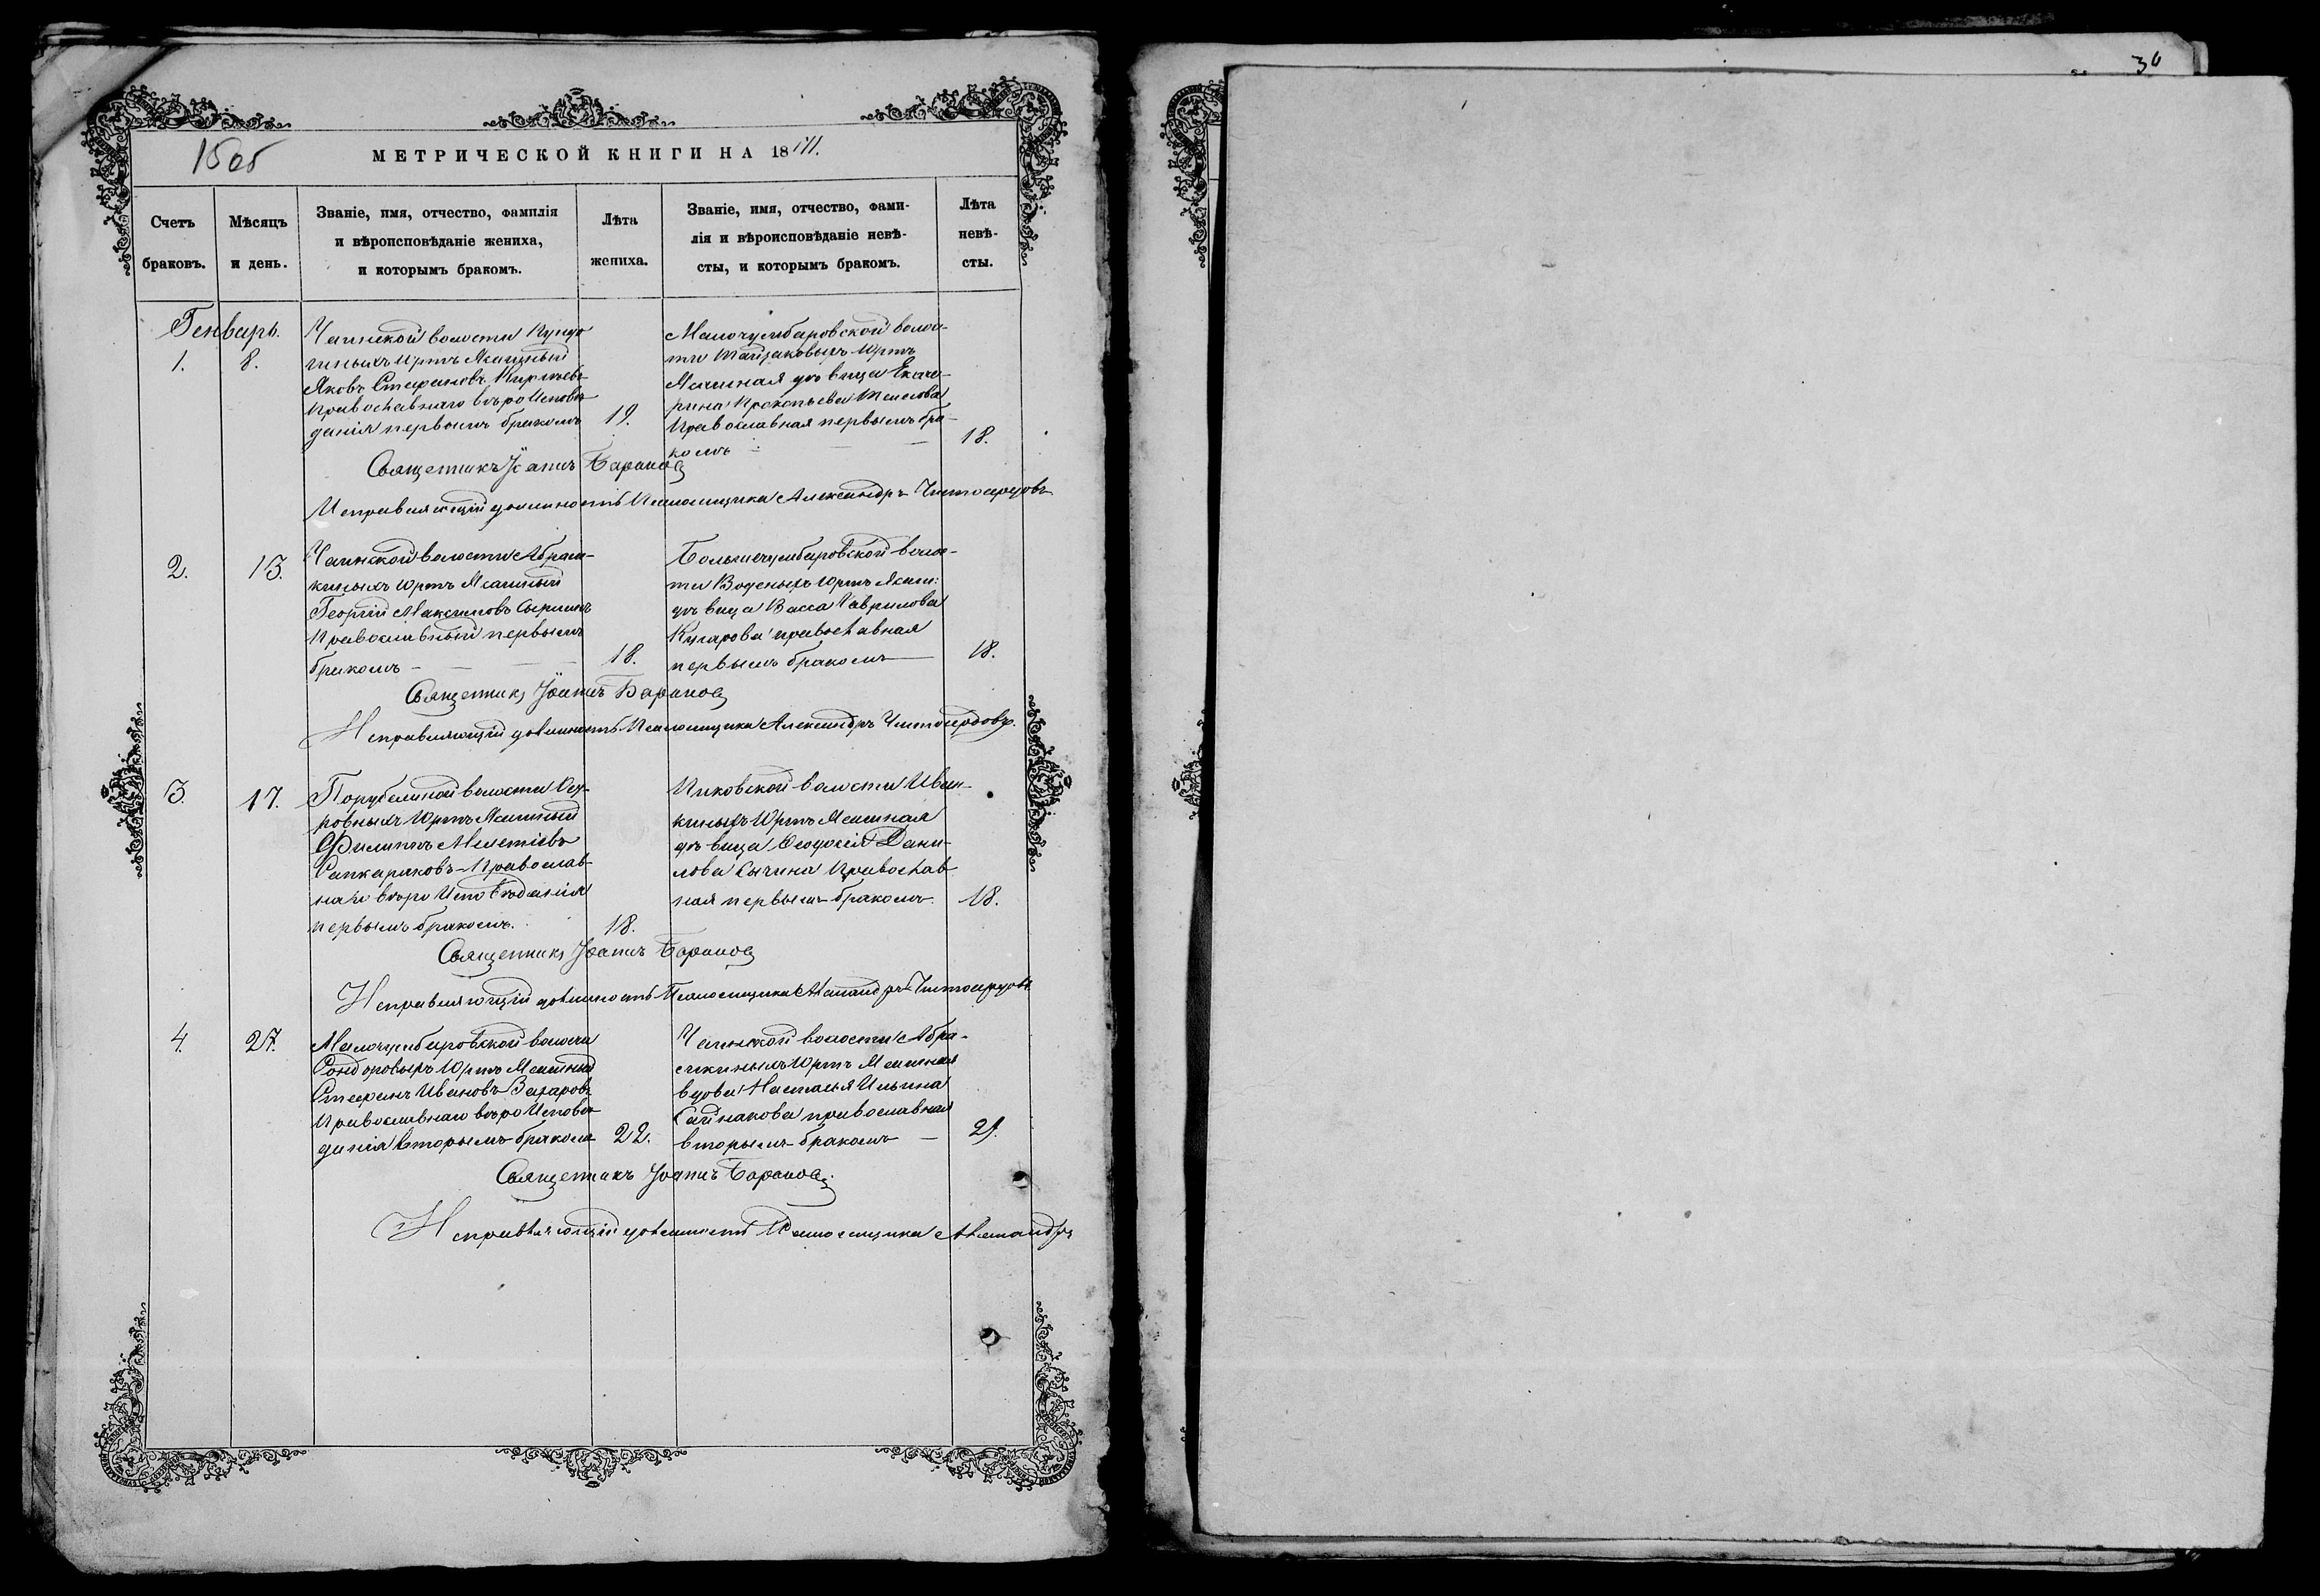 36
15об
МЕТРИЧЕСКОЙ КНИГИ НА 18
Счетъ браковъ.
Мѣсяцъ и день.
Званіе, имя, отчество, фамилія
и вѣроисповѣданіе жениха,
и которымъ бракомъ.
Лѣта жениха.
Званіе, имя, отчество, фами-
лія и вѣроисповѣданіе невѣ-
сты, и которымъ бракомъ.
Лѣта невѣ-
сты.
Генварь.
1. 8.
Чаинской волости
юртъ Ясашный
Яковъ Стефановъ
Православнаго вѣроисповѣ-
данія первымъ бракомъ 19.
Малочулибаровской волос-
ти юртъ
Ясашная дѣвица Екате-
рина Прокопьева
Православная первымъ бра-
комъ 18.
Священникъ Іоаннъ Баранов
Исправляющій должность Псаломщика Александръ Чистосердовъ
2. 13.
Чаинской волости Абрам-
киныхъ юртъ Ясашный
Георгій Максимовъ
Православный первымъ
бракомъ 18.
Большечулибаровской волос-
ти юртъ Ясаш:
дѣвица Васса Гаврилова
православная
первымъ бракомъ 18.
Священник Іоаннъ Баранов
Исправляющій должность Псаломщика Александръ Чистосердовъ.
3. 17.
волости
ровныхъ Юртъ Ясашный
Филиппъ Мелетіевъ
Православ-
наго вѣроисповѣданія
первымъ бракомъ. 18.
Пиковской волости Иван-
киныхъ Юртъ Ясашная
дѣвица Ѳеодосія Дани-
лова Сычина Православ
ная первымъ бракомъ. 18.
Священник Іоаннъ Баранов
Исправляющій должность Псаломщика Александръ Чистосердовъ.
4. 27.
Малочулибаровской волости
Юртъ Ясашный
Стефанъ Ивановъ
Православнаго вѣроисповѣ-
данія вторымъ бракомъ 22.
Чаинской волости Абра-
мкиныхъ Юртъ Ясашная
вдова Наталья Ильина
православная
вторымъ бракомъ
Священникъ Іоаннъ Баранов.
Исправляющій должность Псаломщика Александръ